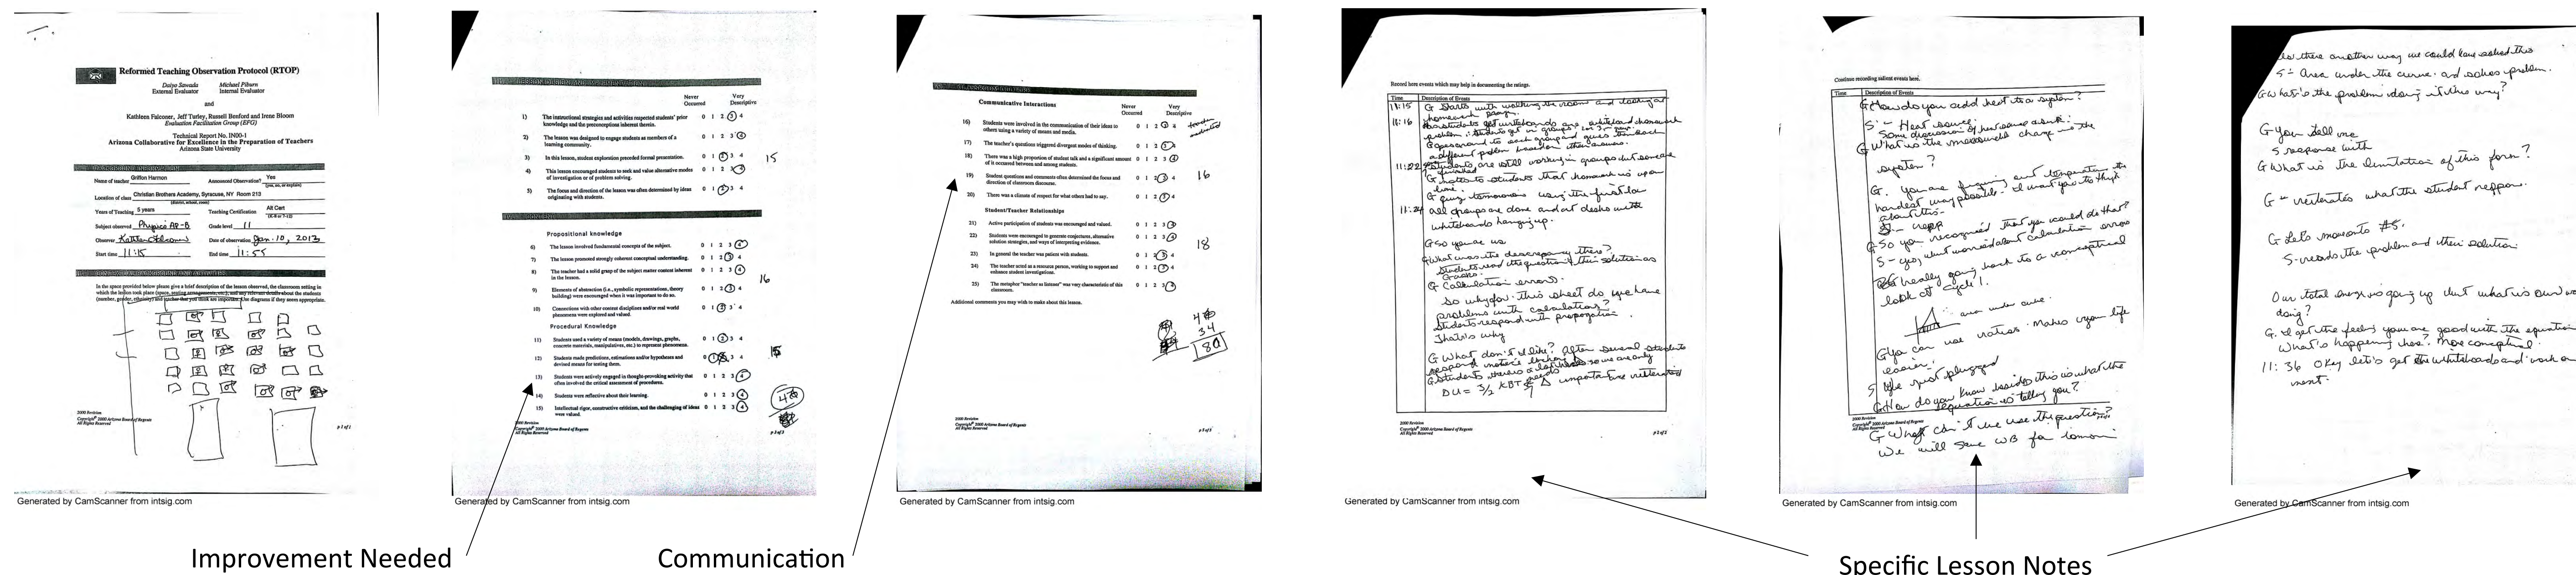 Reformed Teaching Observation Protocol (RTOP)
Daiyo Sawada Michael Piburn
External Evaluator Internal Evaluator
and
Kathleen Falconer, Jeff Turley, Russell Benford and Irene Bloom
Evaluation Facilitation Group (EFG)
Technical Report No. IN00-1
Arizona Collaborative for Excellence in the Preparation of Teachers
Arizona State University
Name of teacher Griffon Harmon Announced Observation? Yes
(yes, no, or explain)
Location of class Christian Brothers Academy, Syracuse, NY Room 213
(district, school, room)
Years of Teaching 5 years Teaching Certification Alt Cert
(K-8 or 7-12)
Subject observed Physics AP-B Grade level 11
Observer Date of observation Jan. 10, 2013
Start time 11:15 End time 11:55
In the space provided below please give a brief description of the lesson observed, the classroom setting in
which the lesson took place (space, seating arrangements, etc.), and any relevant details about the students
(number, gender, ethnicity) and teacher that you think are important. Use diagrams if they seem appropriate.
2000 Revision
Copyright© 2000 Arizona Board of Regents
All Rights Reserved
Generated by CamScanner from intsig.com
Never Occurred Very Descriptive
1) The instructional strategies and activities respected students' prior
knowledge and the preconceptions inherent therein. 0 1 2 3 4
2) The lesson was designed to engage students as members of a
learning community. 0 1 2 3 4
3) In this lesson, student exploration preceded formal presentation. 0 1 2 3 4
15
4) This lesson encouraged students to seek and value alternative modes
of investigation or of problem solving. 0 1 2 3 4
5) The focus and direction of the lesson was often determined by ideas
originating with students. 0 1 2 3 4
Propositional knowledge
6) The lesson involved fundamental concepts of the subject. 0 1 2 3 4
7) The lesson promoted strongly coherent conceptual understanding. 0 1 2 3 4
8) The teacher had a solid grasp of the subject matter content inherent
in the lesson. 0 1 2 3 4
16
9) Elements of abstraction (i.e., symbolic representations, theory
building) were encouraged when it was important to do so. 0 1 2 3 4
10) Connections with other content disciplines and/or real world
phenomena were explored and valued. 0 1 2 3 4
Procedural Knowledge
11) Students used a variety of means (models, drawings, graphs,
concrete materials, manipulatives, etc.) to represent phenomena. 0 1 2 3 4
12) Students made predictions, estimations and/or hypotheses and
devised means for testing them. 0 1 2 3 4
15
13) Students were actively engaged in thought-provoking activity that
often involved the critical assessment of procedures. 0 1 2 3 4
14) Students were reflective about their learning. 0 1 2 3 4
15) Intellectual rigor, constructive criticism, and the challenging of ideas
were valued. 0 1 2 3 4
2000 Revision
Copyright© 2000 Arizona Board of Regents
All Rights Reserved
Generated by CamScanner from intsig.com
Communicative Interactions
Never Occurred Very Descriptive
16) Students were involved in the communication of their ideas to
others using a variety of means and media. 0 1 2 3 4
17) The teacher's questions triggered divergent modes of thinking. 0 1 2 3 4
18) There was a high proportion of student talk and a significant amount
of it occurred between and among students. 0 1 2 3 4
19) Student questions and comments often determined the focus and
direction of classroom discourse. 0 1 2 3 4
16
20) There was a climate of respect for what others had to say. 0 1 2 3 4
Student/Teacher Relationships
21) Active participation of students was encouraged and valued. 0 1 2 3 4
22) Students were encouraged to generate conjectures, alternative
solution strategies, and ways of interpreting evidence. 0 1 2 3 4
18
23) In general the teacher was patient with students. 0 1 2 3 4
24) The teacher acted as a resource person, working to support and
enhance student investigations. 0 1 2 3 4
25) The metaphor "teacher as listener" was very characteristic of this
classroom. 0 1 2 3 4
Additional comments you may wish to make about this lesson.
34
80
2000 Revision
Copyright© 2000 Arizona Board of Regents
All Rights Reserved
Generated by CamScanner from intsig.com
Record here events which may help in documenting the ratings.
Time Description of Events
11:15 G Starts with walking the room and looking at
homework
11:16 students get whiteboards and homework
problem. Students get in groups
G goes around to each group and gives them each
a different problem
11:22 Students are still working in groups but some are
finished
G notes to students that homework is up on
line.
G quiz tomorrow using the first law
11:24 all groups are done and at desks with
whiteboards hanging up.
G So you
G what was the discrepancy there?
Students read the question & their solution
G Calculation errors.
So why for this sheet do we have
problems with calculations?
Students respond with propogation.
That's why
G What don't I like? After several students
respond
DU = 3/2
2000 Revision
Copyright© 2000 Arizona Board of Regents
All Rights Reserved
Generated by CamScanner from intsig.com
Continue recording salient events here.
Time Description of Events
G How do you add heat to a system?
S - Heat source.
Some discussion of heat source
G What is the change in the
system?
G. You are figuring out temperature the
hardest way possible. I want you to think
about this.
G So you recognized that you would do that?
S - yes, but worried about calculation errors
really going back to a conceptual
look at cycle 1.
area under curve.
G you can use ratios. Makes your life
easier.
S We just plugged
G How do you know besides this is what the
equation is telling you?
G What can't we use the question?
We will save WB for
2000 Revision
Copyright© 2000 Arizona Board of Regents
All Rights Reserved
Generated by CamScanner from intsig.com
Is there another way we could have solved this
S - Area under the curve. and solves problem.
G What's the problem doing it this way?
G You tell me
S response with
G What is the limitation of this form?
G - reiterates what the student
G Lets move onto #5.
S - reads the problem and their solution
Our total energy is going up but what is our
doing?
G. I get the feeling you are good with the equation
What's happening here? More conceptual.
11:36 Okay let's get the whiteboards and work on
next.
Generated by CamScanner from intsig.com
Improvement Needed
Communication
Specific Lesson Notes